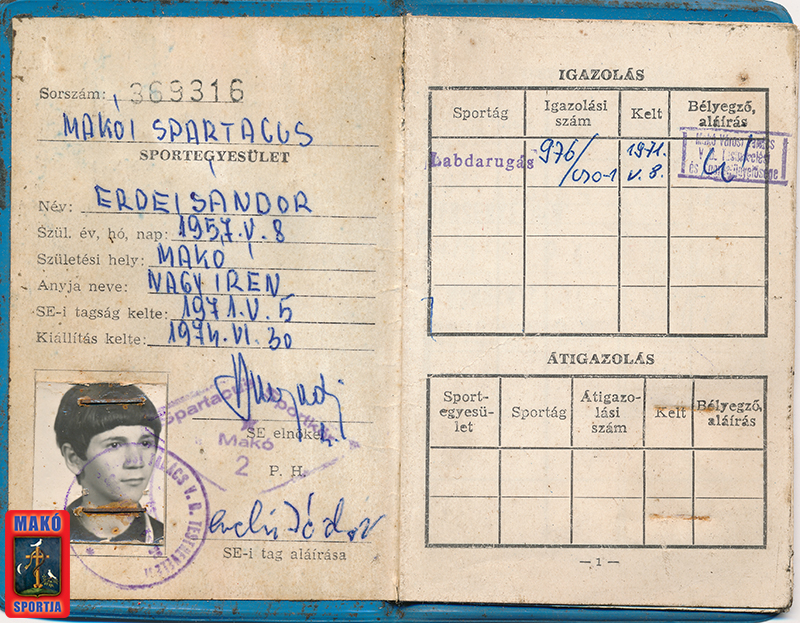 Sorszám: 369316
MAKÓI SPARTACUS
SPORTEGYESÜLET
Név: ERDEI SÁNDOR
Szül. év, hó, nap: 1957. V. 8
Születési hely: MAKÓ
Anyja neve: NAGY IREN
SE-i tagság kelte: 1971. V. 5
Kiállítás kelte: 1974. VI. 30
Spartacus Sportkör
Makó
2
SE elnöke
P. H.
SE-i tag aláírása
MAKÓ
SPORTJA
IGAZOLÁS
Sportág Igazolási szám Kelt Bélyegző, aláírás
Labdarugás 976/cso-1 1971. V. 8.
ÁTIGAZOLÁS
Sport-egyesü-let Sportág Átigazo-lási szám Kelt Bélyegző, aláírás
—1—